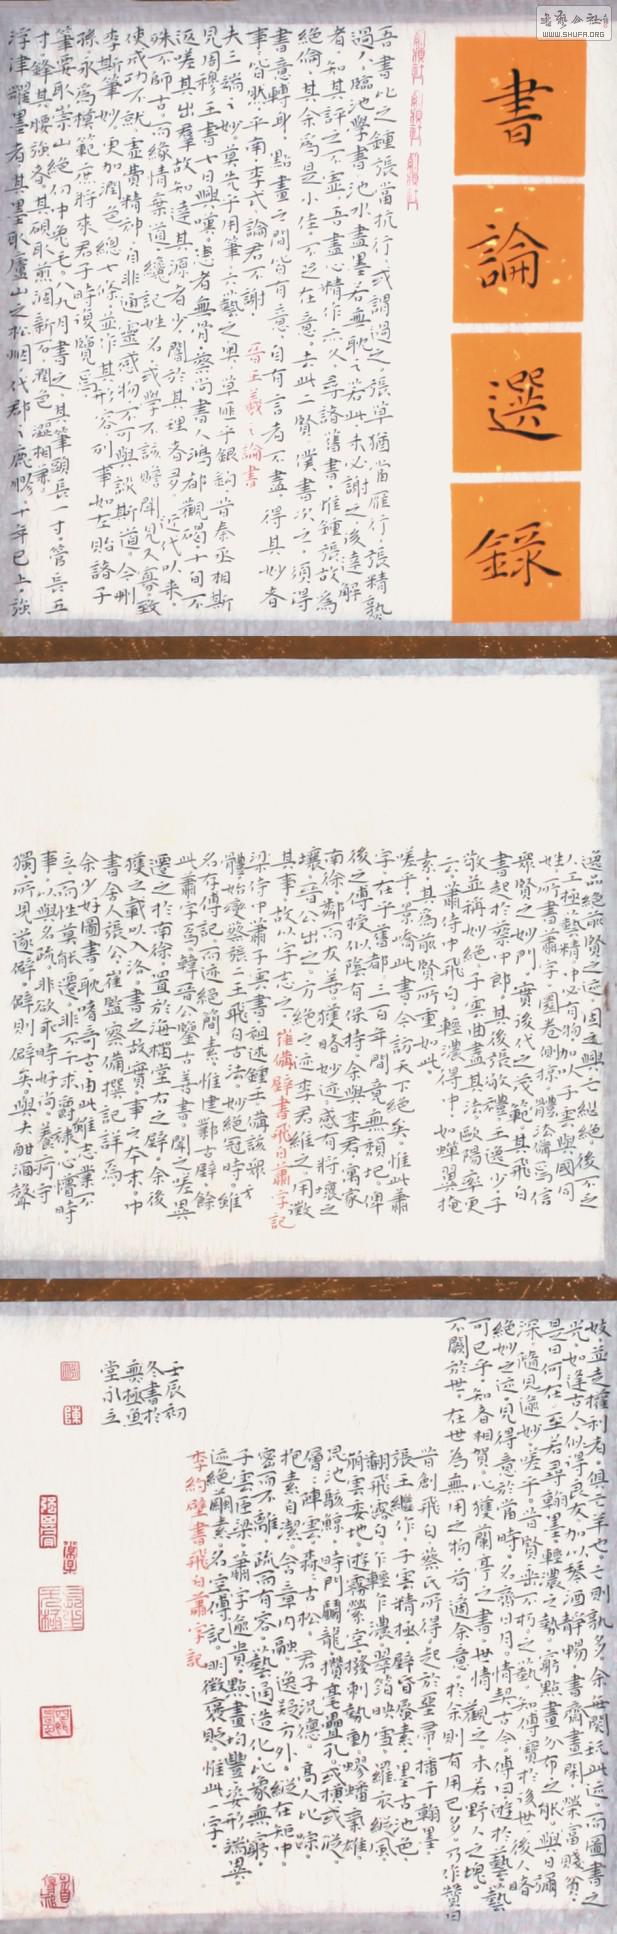 書論選錄
吾書比之鍾張當抗行或謂過之張草猶當雁行張精熟
過人臨池學書池水盡墨若吾耽之若此未必謝之後達解
者知其評之不虛吾盡心精作亦久尋諸舊書惟鍾張故為
絕倫其余為是小佳不足在意去此二賢僕書次之須得
書意轉身點畫之間皆有意自有言者不盡得其妙者
事皆然平南李式論君不謝 晉王羲之論書
夫三端之妙莫先乎用筆六藝之奧草匪乎銀鈎昔秦丞相斯
見周穆王書七日興嘆患者無骨蔡尚書入鴻都觀碣十旬不
返嗟其出群故知達其源者少闇於其理者多近代以來
殊不師古而緣情棄道纔記姓名或學不該贍聞見又寡致
使成功不就虛費精神自非通靈感物不可與談斯道今刪
李斯筆妙更加潤色總七條並作其形容列事如左貽諸子
孫永為模範庶將來君子時復覽焉
筆要取崇山絕仞中兔毛八九月書之其筆頭長一寸管長五
寸鋒其腰強者其硯取煎涸新石潤色澀相兼
浮津耀墨者其墨取廬山之松烟代郡之鹿膠十年已上強
逸品絕前賢之迹因之興亡繼絕後不之
人王極藝精中必有物加以子雲與國同
姓所書蕭字圈卷側掠體法備為信
眾賢之妙門實後代之茂範其飛白
書起於蔡中郎其後張敬禮王逸少子
敬並稱妙絕子雲曲盡其法歐陽率更
云蕭侍中飛白輕濃得中如蟬翼掩
素其為前賢所重如此
嗟乎景喬此書今訪天下絕矣惟此蕭
字在似舊都三百年間竟無頹圮俾
後之傳授似陰有保持余與李君寓家
南徐鄰而友善獲睹妙迹感有將壞之
壤晉公出之方絕之迹李君維之用徵
其事故以字志之 崔備壁書飛白蕭字記
梁侍中蕭子雲書祖述鍾王備該眾
體始變蔡張二王飛白古法妙絕冠時雖
名存傳記而迹絕簡素惟建鄴古壁餘
此蕭字焉韓晉公鑒古善書聞之嗟異
遷之於南徐置於海榴堂右之壁余後
獲之載以入洛書之故實事之本末中
書舍人張公崔監察備撰記詳焉
余少好圖書耽嗜奇古由此雖志業不
立而性莫能遷非不干求爵祿心懵時
事以與名疏非欲乖時好尚養疴守
獨所見遂僻僻則僻矣與夫酣酒聲
妓並走權利者俱亡羊也亡則孰多余每閱玩此迹而圖書之
光如逢古人似得良友加以琴酒靜暢書齋晝閑榮富賤貧
是曰何在至若尋翰墨輕濃之勢窮點畫分布之能與日彌
深隨見逾妙嗟乎昔賢垂不朽之藝知傳寶於後世後人睹
絕妙之迹見得意於當時名齋日月情契古今傳曰遊於藝藝
可已乎知者相賀心獲蘭亭之書世情觀之未若野人之塊
不關於世在世為無用之物苟適余意於余則有用已多乃作贊曰
昔創飛白蔡氏所得起於堊帚播于翰墨
張王繼作子雲精極壁昏屬素墨古池色
翻飛露白乍輕乍濃翠箔映雪羅衣從風
崩雲委地游霧縈空撥剌勢動蟉蟠氣雄
昆池駭鯨時門鬭龍攢毫疊孔或橫或縱
層層陣雲森古松君子況德高人比蹤
抱素自潔含章內融逸疑方外縱在矩中
密而不離疏而有容藝通造化心象無窮
子雲臣梁蕭字逾貴點畫均豐姿形端異
迹絕簡素名空傳記明徵褒貶惟此一字
李約壁書飛白蕭字記
壬辰初
冬書於
無極魚
堂永立
書藝公社
WWW.SHUFA.ORG